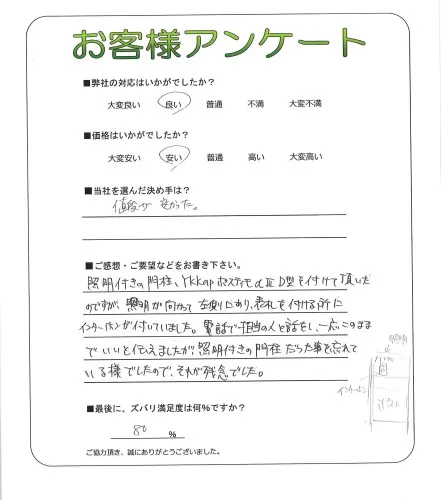 お客様アンケート
■弊社の対応はいかがでしたか?
大変良い 良い 普通 不満 大変不満
■価格はいかがでしたか?
大変安い 安い 普通 高い 大変高い
■当社を選んだ決め手は?
値段が安かった。
■ご感想・ご要望などをお書き下さい。
照明付きの門柱、YKKap ポスティモαⅡD型を付けて頂いた
のですが、照明が向かって左側にあり、表札を付ける所に
インターホンが付いていました。電話で担当の人と話をし、一応このまま
でいいと伝えましたが、照明付きの門柱だった事を忘れて
いる様でしたので、それが残念でした。
照明
インターホン
ポスト
■最後に、ズバリ満足度は何%ですか?
80 %
ご協力頂き、誠にありがとうございました。